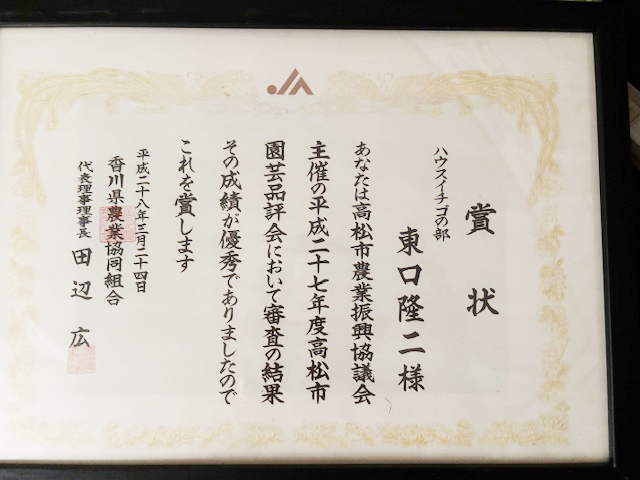 賞状
ハウスイチゴの部
東口隆二様
あなたは高松市農業振興協議会
主催の平成二十七年度高松市
園芸品評会において審査の結果
その成績が優秀でありましたので
これを賞します
平成二十八年三月二十四日
香川県農業協同組合
代表理事理事長 田辺広
JA